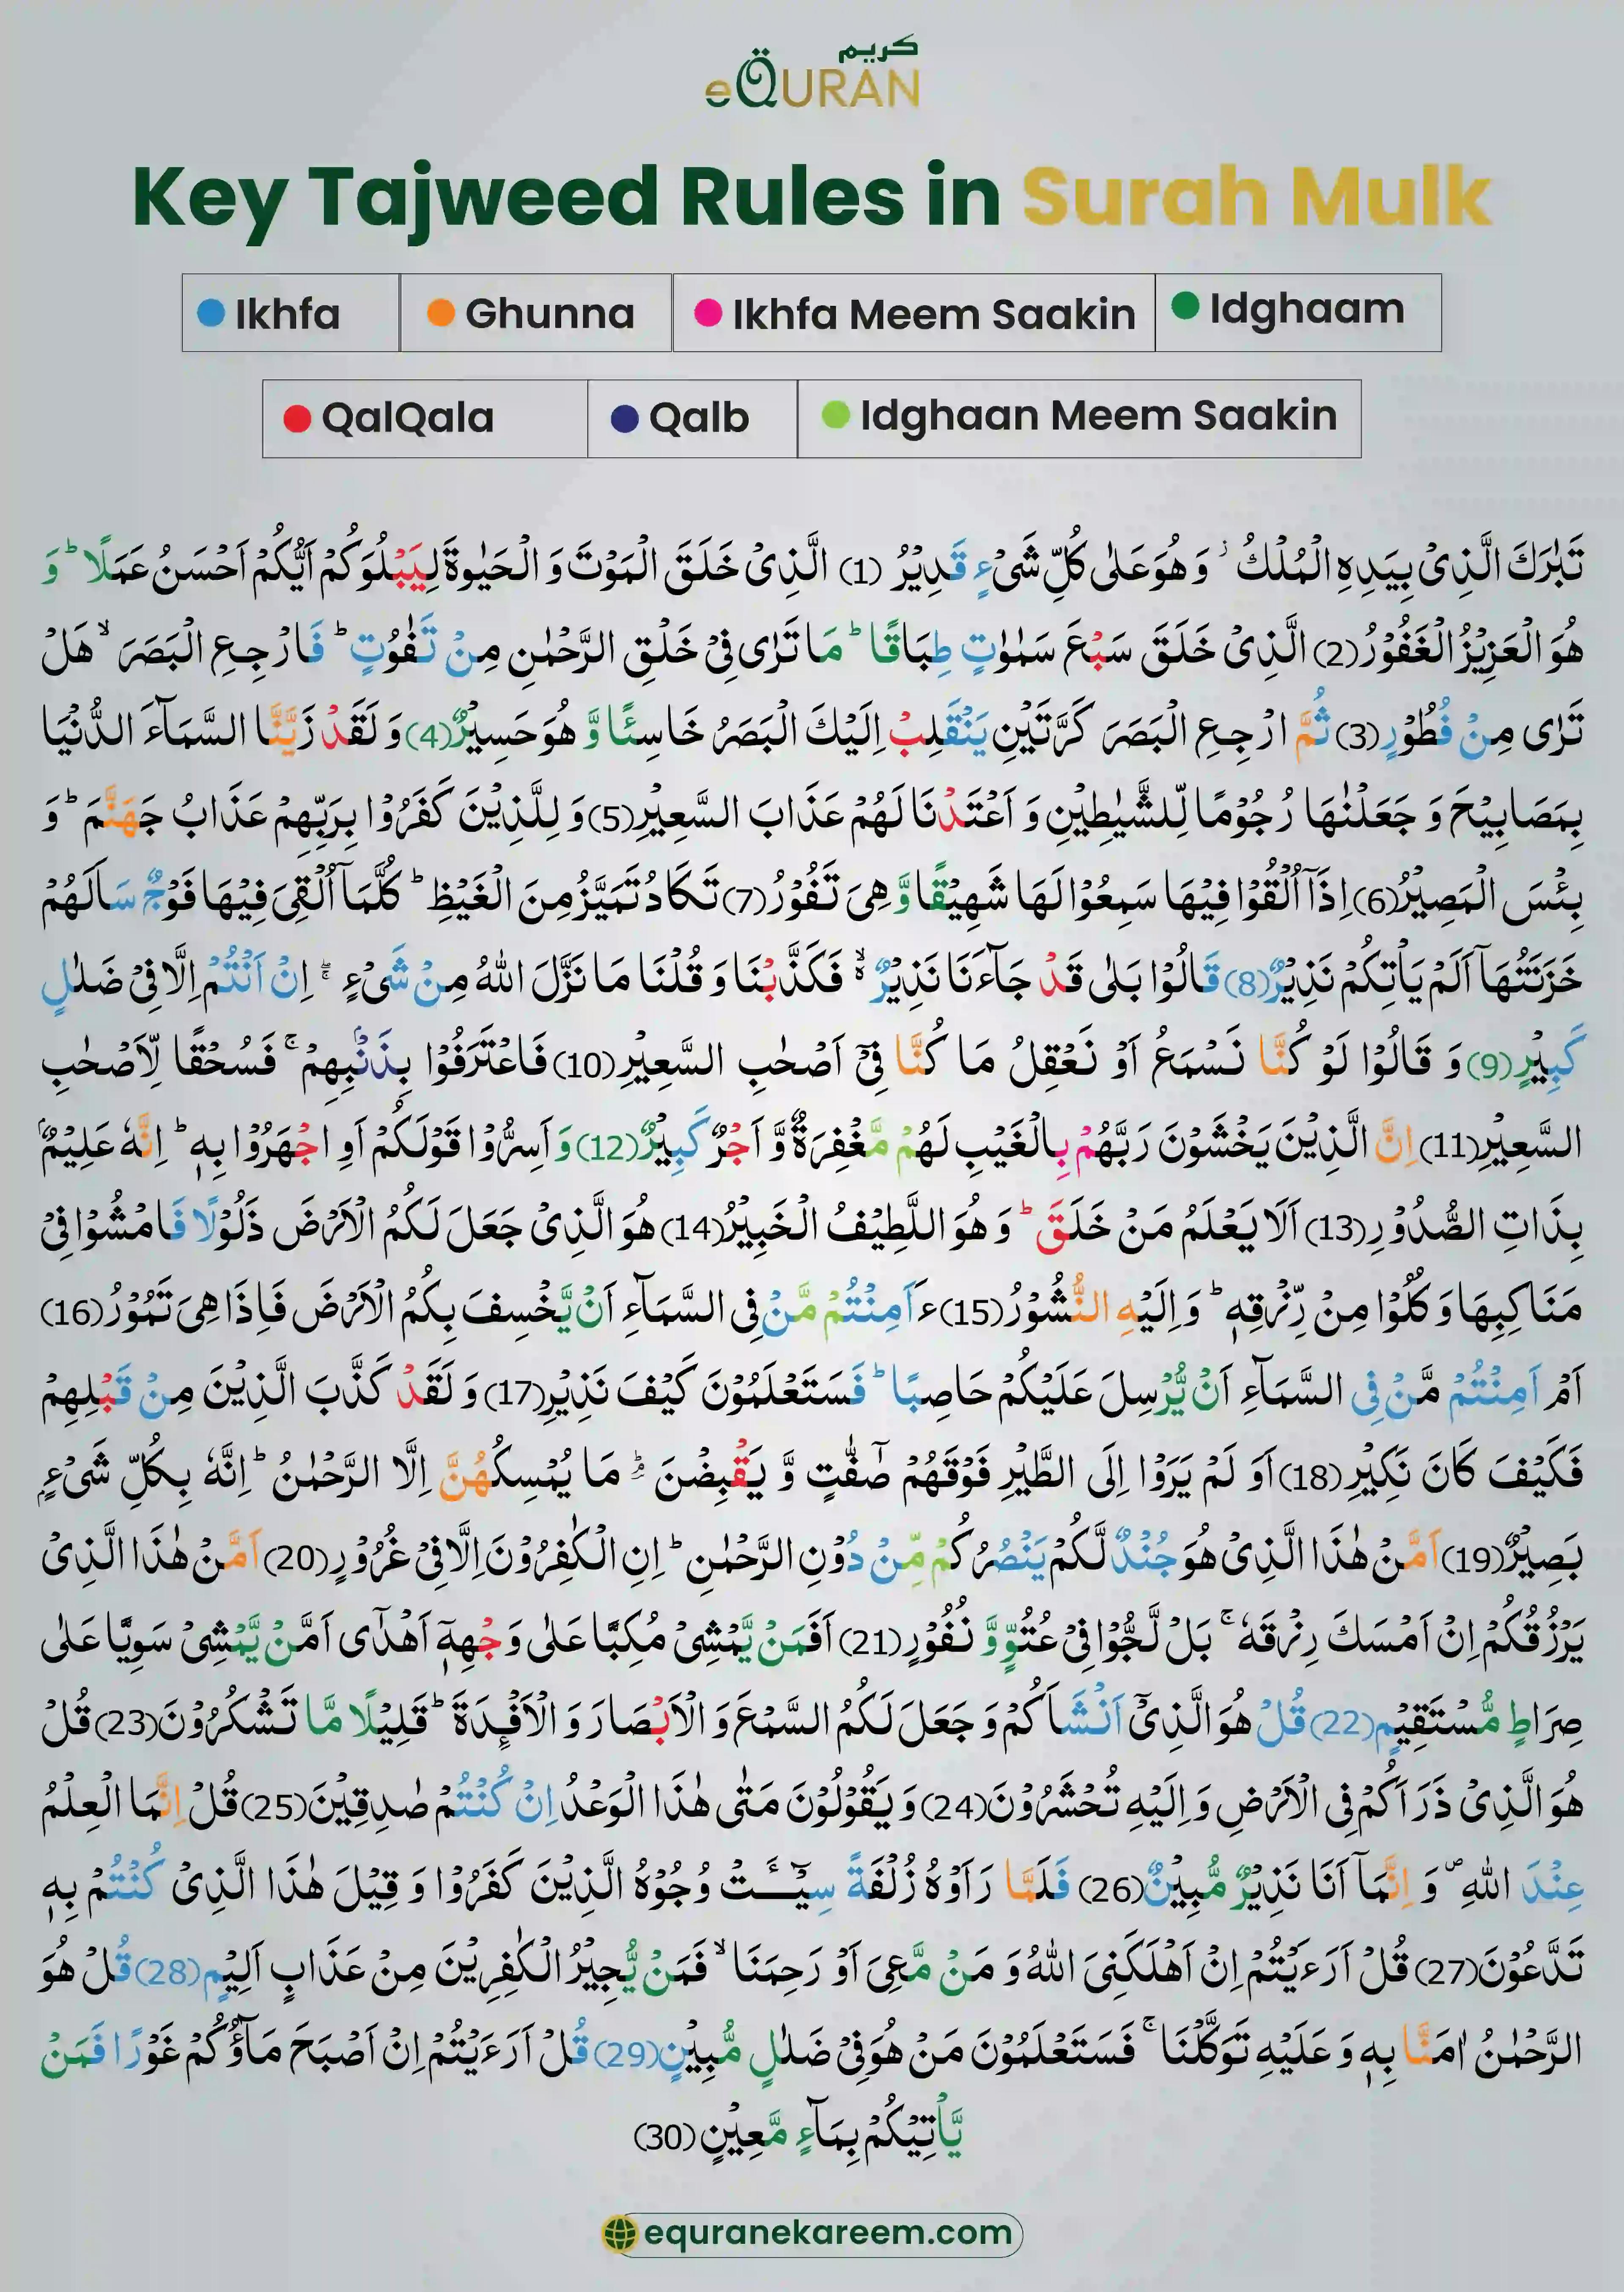 كريم
eQURAN
Key Tajweed Rules in Surah Mulk
Ikhfa Ghunna Ikhfa Meem Saakin Idghaam
QalQala Qalb Idghaan Meem Saakin
تَبٰرَكَ الَّذِیْ بِیَدِهِ الْمُلْكُ ؗ وَ هُوَ عَلٰى كُلِّ شَیْءٍ قَدِیْرُ (1) الَّذِیْ خَلَقَ الْمَوْتَ وَ الْحَیٰوةَ لِیَبْلُوَكُمْ اَیُّكُمْ اَحْسَنُ عَمَلًا ؕ وَ
هُوَ الْعَزِیْزُ الْغَفُوْرُ(2) الَّذِیْ خَلَقَ سَبْعَ سَمٰوٰتٍ طِبَاقًا ؕ مَا تَرٰى فِیْ خَلْقِ الرَّحْمٰنِ مِنْ تَفٰوُتٍ ؕ فَارْجِعِ الْبَصَرَ ۙ هَلْ
تَرٰى مِنْ فُطُوْرٍ(3) ثُمَّ ارْجِعِ الْبَصَرَ كَرَّتَیْنِ یَنْقَلِبْ اِلَیْكَ الْبَصَرُ خَاسِئًا وَّ هُوَ حَسِیْرٌ(4) وَ لَقَدْ زَیَّنَّا السَّمَآءَ الدُّنْیَا
بِمَصَابِیْحَ وَ جَعَلْنٰهَا رُجُوْمًا لِّلشَّیٰطِیْنِ وَ اَعْتَدْنَا لَهُمْ عَذَابَ السَّعِیْرِ(5) وَ لِلَّذِیْنَ كَفَرُوْا بِرَبِّهِمْ عَذَابُ جَهَنَّمَ ؕ وَ
بِئْسَ الْمَصِیْرُ(6) اِذَاۤ اُلْقُوْا فِیْهَا سَمِعُوْا لَهَا شَهِیْقًا وَّ هِیَ تَفُوْرُ(7) تَكَادُ تَمَیَّزُ مِنَ الْغَیْظِ ؕ كُلَّمَاۤ اُلْقِیَ فِیْهَا فَوْجٌ سَاَلَهُمْ
خَزَنَتُهَاۤ اَلَمْ یَاْتِكُمْ نَذِیْرٌ(8) قَالُوْا بَلٰى قَدْ جَآءَنَا نَذِیْرٌ ۙ۬ فَكَذَّبْنَا وَ قُلْنَا مَا نَزَّلَ اللّٰهُ مِنْ شَیْءٍ ۚۖ اِنْ اَنْتُمْ اِلَّا فِیْ ضَلٰلٍ
كَبِیْرٍ(9) وَ قَالُوْا لَوْ كُنَّا نَسْمَعُ اَوْ نَعْقِلُ مَا كُنَّا فِیْۤ اَصْحٰبِ السَّعِیْرِ(10) فَاعْتَرَفُوْا بِذَنْۢبِهِمْ ۚ فَسُحْقًا لِّاَصْحٰبِ
السَّعِیْرِ(11) اِنَّ الَّذِیْنَ یَخْشَوْنَ رَبَّهُمْ بِالْغَیْبِ لَهُمْ مَّغْفِرَةٌ وَّ اَجْرٌ كَبِیْرٌ(12) وَ اَسِرُّوْا قَوْلَكُمْ اَوِ اجْهَرُوْا بِهٖ ؕ اِنَّهٗ عَلِیْمٌۢ
بِذَاتِ الصُّدُوْرِ(13) اَلَا یَعْلَمُ مَنْ خَلَقَ ؕ وَ هُوَ اللَّطِیْفُ الْخَبِیْرُ(14) هُوَ الَّذِیْ جَعَلَ لَكُمُ الْاَرْضَ ذَلُوْلًا فَامْشُوْا فِیْ
مَنَاكِبِهَا وَ كُلُوْا مِنْ رِّزْقِهٖ ؕ وَ اِلَیْهِ النُّشُوْرُ(15) ءَاَمِنْتُمْ مَّنْ فِی السَّمَآءِ اَنْ یَّخْسِفَ بِكُمُ الْاَرْضَ فَاِذَا هِیَ تَمُوْرُ(16)
اَمْ اَمِنْتُمْ مَّنْ فِی السَّمَآءِ اَنْ یُّرْسِلَ عَلَیْكُمْ حَاصِبًا ؕ فَسَتَعْلَمُوْنَ كَیْفَ نَذِیْرِ(17) وَ لَقَدْ كَذَّبَ الَّذِیْنَ مِنْ قَبْلِهِمْ
فَكَیْفَ كَانَ نَكِیْرِ(18) اَوَ لَمْ یَرَوْا اِلَى الطَّیْرِ فَوْقَهُمْ صٰٓفّٰتٍ وَّ یَقْبِضْنَ ؔۘؕ مَا یُمْسِكُهُنَّ اِلَّا الرَّحْمٰنُ ؕ اِنَّهٗ بِكُلِّ شَیْءٍۭ
بَصِیْرٌ(19) اَمَّنْ هٰذَا الَّذِیْ هُوَ جُنْدٌ لَّكُمْ یَنْصُرُكُمْ مِّنْ دُوْنِ الرَّحْمٰنِ ؕ اِنِ الْكٰفِرُوْنَ اِلَّا فِیْ غُرُوْرٍ(20) اَمَّنْ هٰذَا الَّذِیْ
یَرْزُقُكُمْ اِنْ اَمْسَكَ رِزْقَهٗ ۚ بَلْ لَّجُّوْا فِیْ عُتُوٍّ وَّ نُفُوْرٍ(21) اَفَمَنْ یَّمْشِیْ مُكِبًّا عَلٰى وَجْهِهٖۤ اَهْدٰۤى اَمَّنْ یَّمْشِیْ سَوِیًّا عَلٰى
صِرَاطٍ مُّسْتَقِیْمٍ(22) قُلْ هُوَ الَّذِیْۤ اَنْشَاَكُمْ وَ جَعَلَ لَكُمُ السَّمْعَ وَ الْاَبْصَارَ وَ الْاَفْـِٕدَةَ ؕ قَلِیْلًا مَّا تَشْكُرُوْنَ(23) قُلْ
هُوَ الَّذِیْ ذَرَاَكُمْ فِی الْاَرْضِ وَ اِلَیْهِ تُحْشَرُوْنَ(24) وَ یَقُوْلُوْنَ مَتٰى هٰذَا الْوَعْدُ اِنْ كُنْتُمْ صٰدِقِیْنَ(25) قُلْ اِنَّمَا الْعِلْمُ
عِنْدَ اللّٰهِ ۪ وَ اِنَّمَاۤ اَنَا نَذِیْرٌ مُّبِیْنٌ(26) فَلَمَّا رَاَوْهُ زُلْفَةً سِیْٓـَٔتْ وُجُوْهُ الَّذِیْنَ كَفَرُوْا وَ قِیْلَ هٰذَا الَّذِیْ كُنْتُمْ بِهٖ
تَدَّعُوْنَ(27) قُلْ اَرَءَیْتُمْ اِنْ اَهْلَكَنِیَ اللّٰهُ وَ مَنْ مَّعِیَ اَوْ رَحِمَنَا ۙ فَمَنْ یُّجِیْرُ الْكٰفِرِیْنَ مِنْ عَذَابٍ اَلِیْمٍ(28) قُلْ هُوَ
الرَّحْمٰنُ اٰمَنَّا بِهٖ وَ عَلَیْهِ تَوَكَّلْنَا ۚ فَسَتَعْلَمُوْنَ مَنْ هُوَ فِیْ ضَلٰلٍ مُّبِیْنٍ(29) قُلْ اَرَءَیْتُمْ اِنْ اَصْبَحَ مَآؤُكُمْ غَوْرًا فَمَنْ
یَّاْتِیْكُمْ بِمَآءٍ مَّعِیْنٍ(30)
equranekareem.com